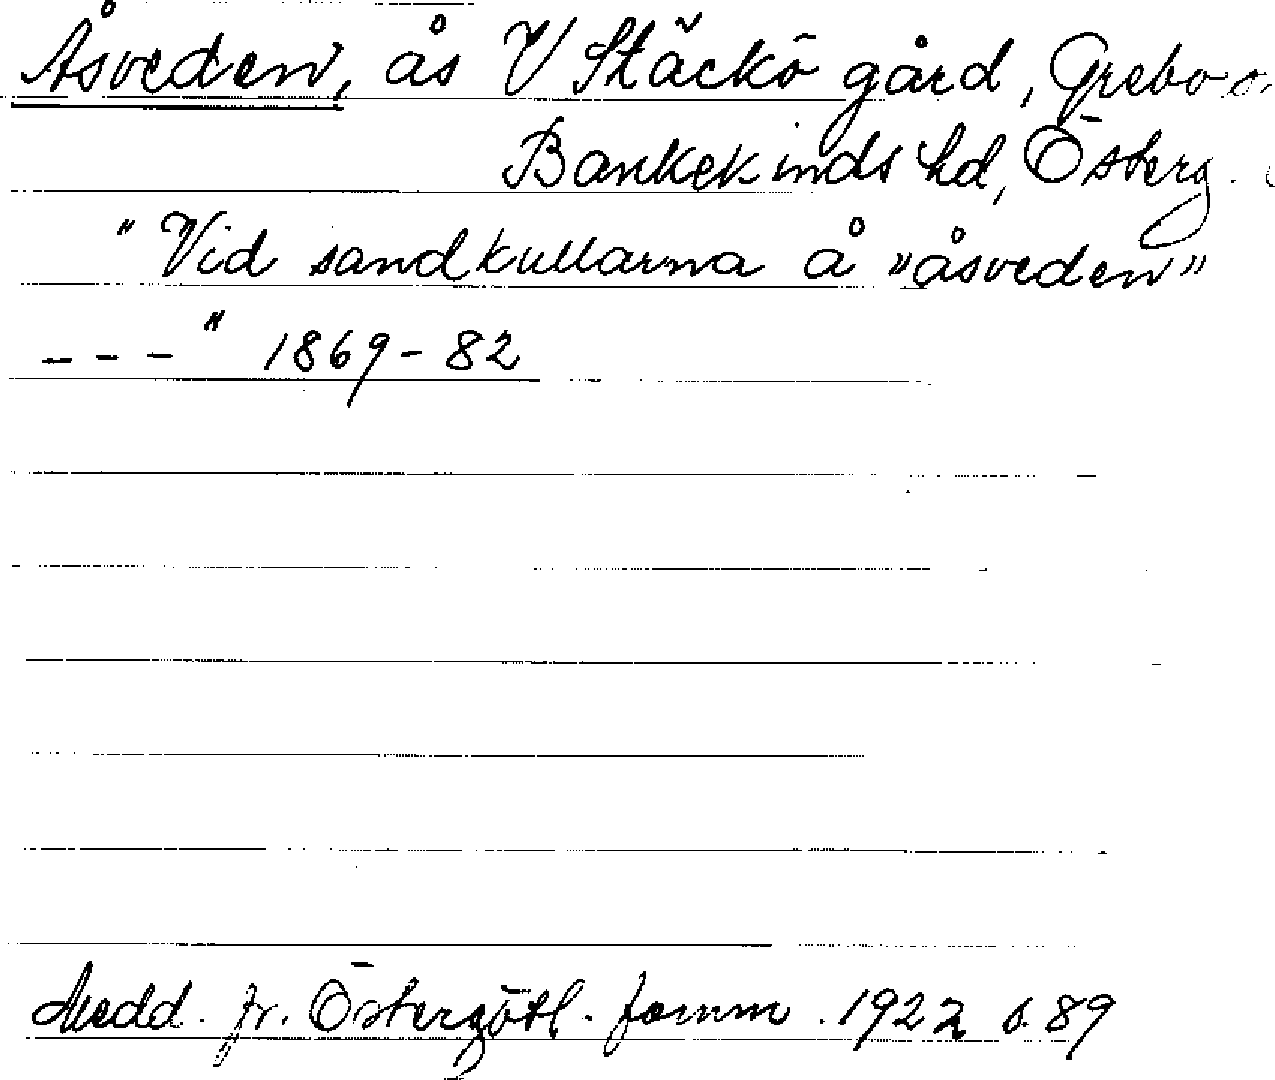 Åsveden, ås V Stäckö gård, Grebo
Bankekinds hd, Österg.
" Vid sandkullarna å "åsveden"
- - - " 1869-82
Medd. fr. Östergötl. fornm. 1922 s. 89